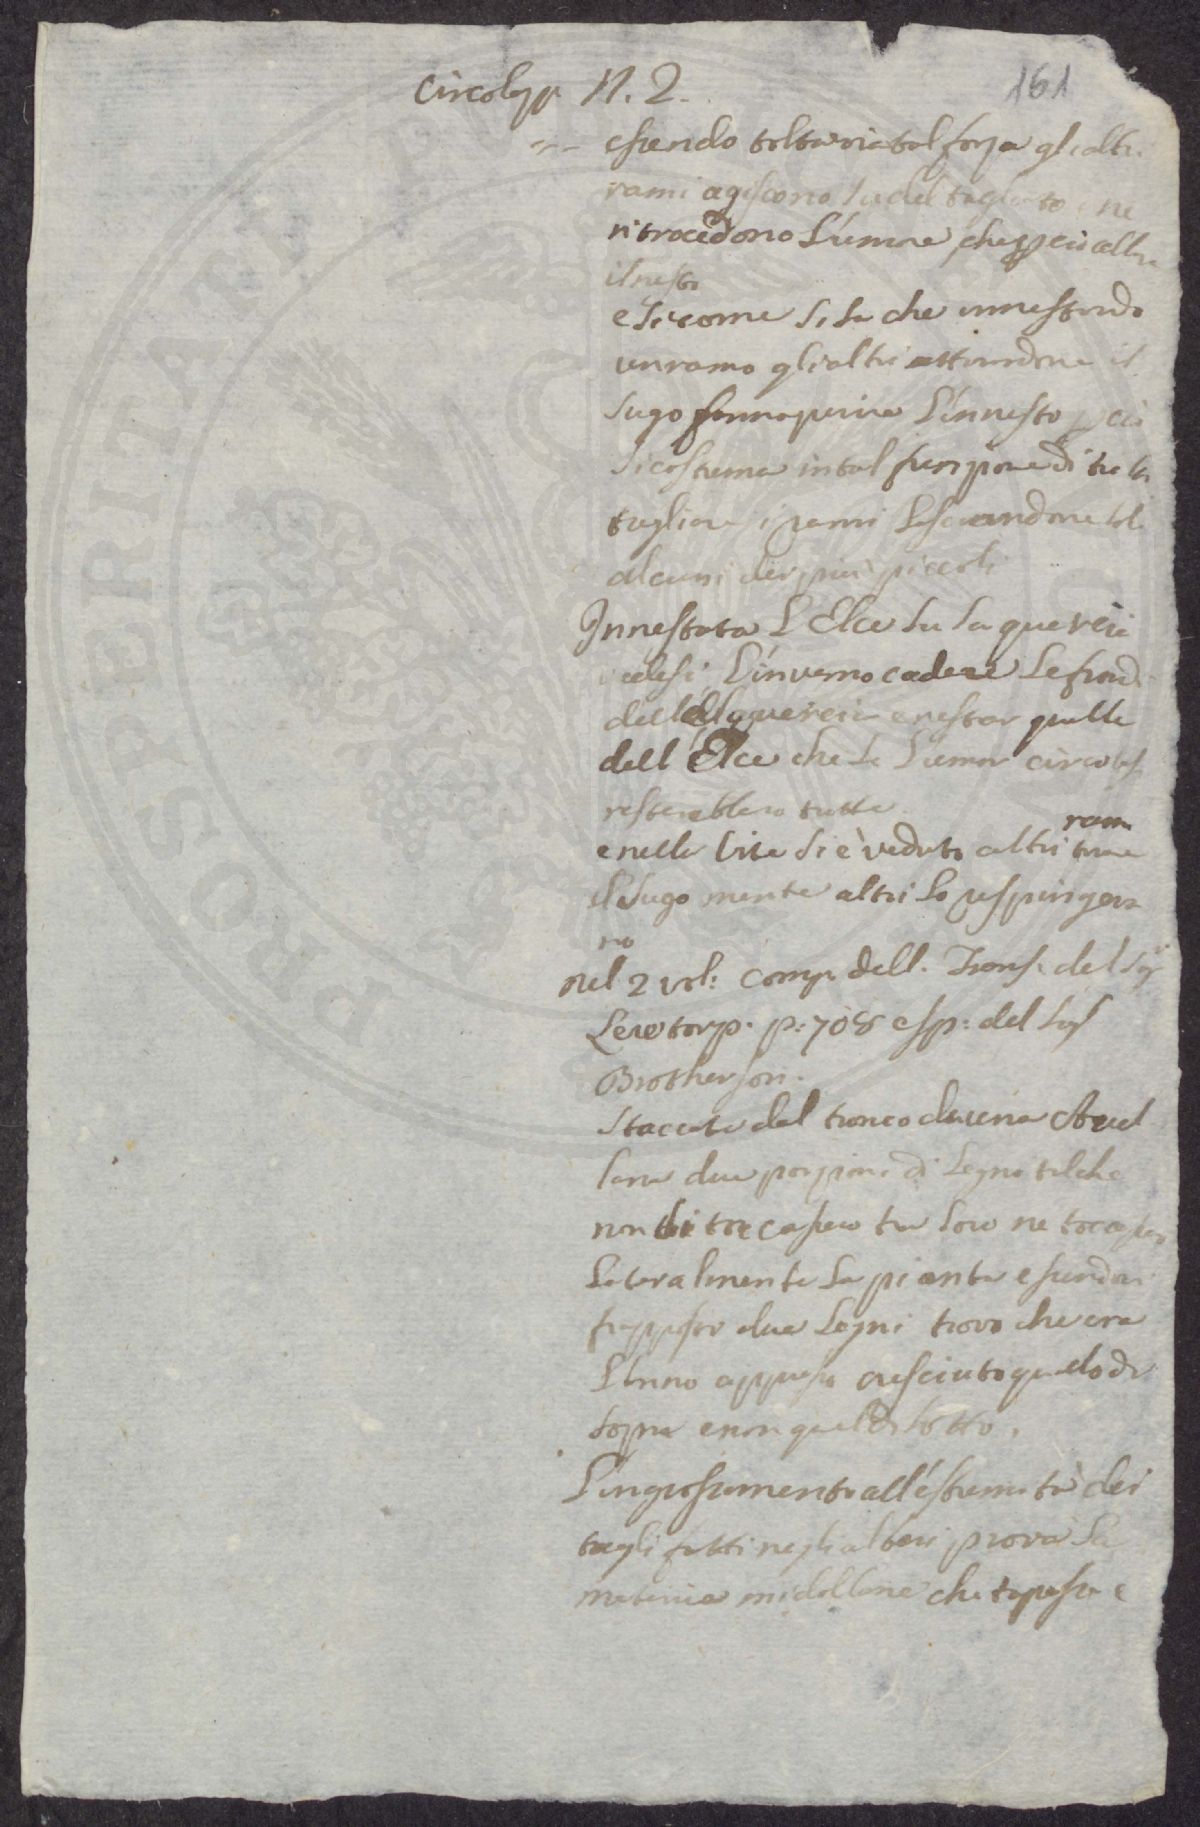 161
Circolazz N. 2.
essendo tolta via tal forza gli altri
rami agiscono su del tagliato e ne
ritrocedono l'umore, che perciò alla
il resto
e siccome si sa che innestando
un ramo gli altri attraendone il
sugo fanno perire l'innesto perciò
si costuma in tal funzione di tutti
tagliare i rami lasciandone soli
alcuni dei più piccoli
Innestata l'Elce su la quercia
vedesi l'inverno cadere le frondi
della quercia e restar quelle
dell'Elce che se l'umor circolasse
resterebbero tutte
e nella Vite si è veduto altri rami
il sugo mentre altri lo respingeva
no
nel 2 vol: comp. dell. Trans. del Sig
Lewtorp. p: 708 esp: del Sig
Brotherson.
staccate dal tronco di una Avel
lana due porzioni di legno tal che
non si toccassero tra loro ne toccassero
lateralmente la pianta essendovi
frapposto due legni trovò che era
l'anno appresso cresciuto quello di
sopra e non quel di sotto.
L'ingrossamento all'estremità dei
tagli fatti negli alberi prova la
materia midollare che